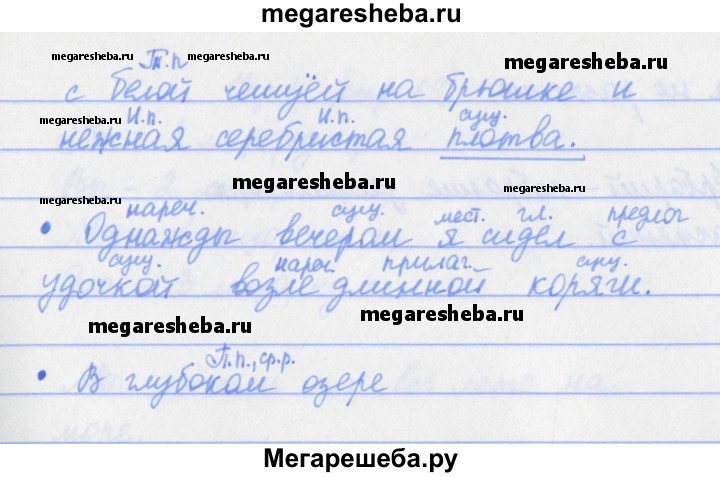 megaresheba.ru
megaresheba.ru Тв.п megaresheba.ru megaresheba.ru
с белой чешуёй на брюшке и
megaresheba.ru И.п. И.п. сущ. megaresheba.ru
нежная серебристая плотва.
megaresheba.ru megaresheba.ru megaresheba.ru
нареч. сущ. мест. гл. предлог
• Однажды вечером я сидел с
сущ. нареч прилаг. сущ.
удочкой возле длинной коряги.
megaresheba.ru megaresheba.ru
П.п., ср.р.
• В глубоком озере
Мегарешеба.ру